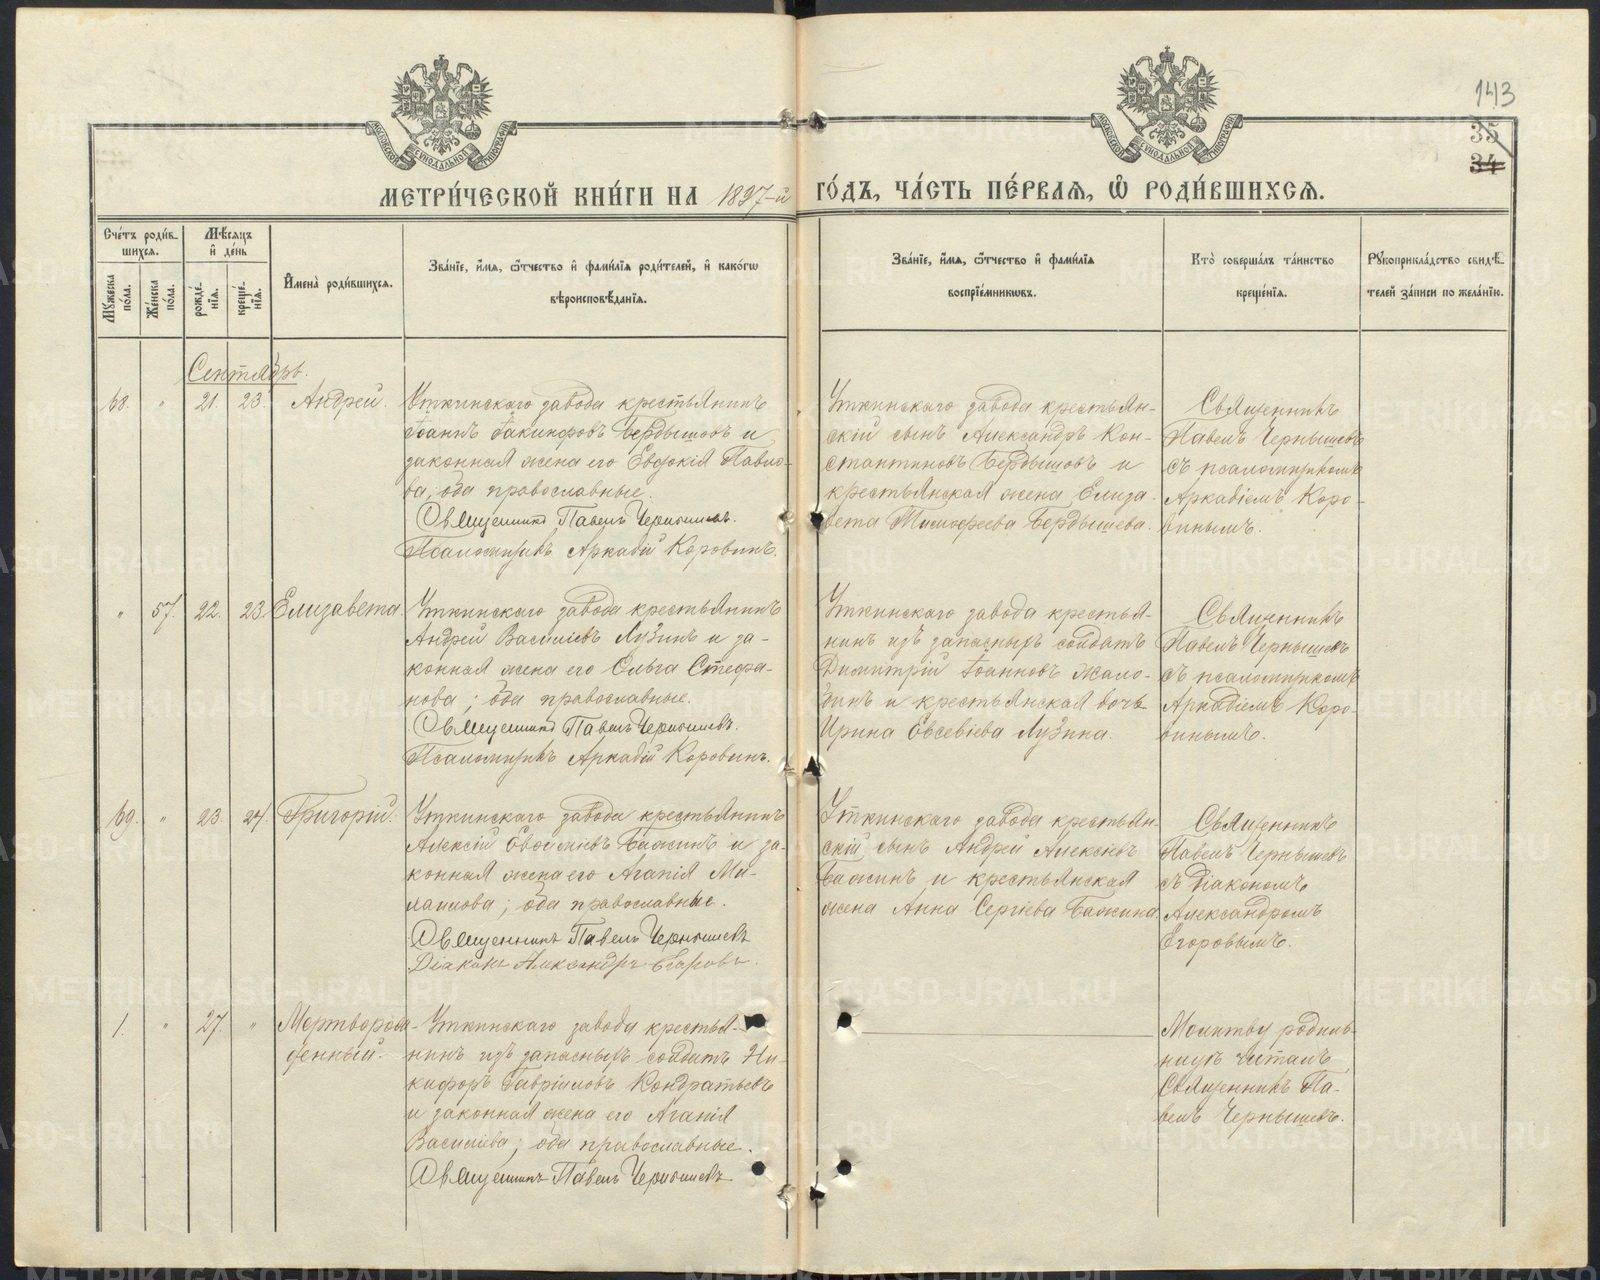 143
35
34
МОСКОВСКОЙ СѴНОДАЛЬНОЙ ТИПОГРАФІИ
МОСКОВСКОЙ СѴНОДАЛЬНОЙ ТИПОГРАФІИ
МЕТРИ́ЧЕСКОЙ КНИ́ГИ НА 1897-й ГО́ДЪ, ЧА́СТЬ ПЕ́РВАЯ, Ѡ РОДИ́ВШИХСЯ.
Сче́тъ роди́в-
шихся.
Мꙋжеска по́ла.
Же́нска по́ла.
Мѣ́сяцъ
и де́нь
рожде́-
нїя.
креще́-
нїя.
И҆мена̀ роди́вшихся.
Зва́нїе, и҆́мя, ѻ҆́тчество и҆ фами́лїя роди́телей, и҆ како́гѡ
вѣроисповѣ́данїя.
Зва́нїе, и҆́мя, ѻ҆́тчество и҆ фами́лїя
воспрїе́мниковъ.
Кто̀ соверша́лъ та́инство
креще́нїя.
Рꙋкоприкла́дство свидѣ́-
телей за́писи по жела́нїю.
Сентябрь.
68. " 21. 23. Андрей.
Уткинскаго завода крестьянинъ
Іоаннъ Іакинфовъ Бердышовъ и
законная жена его Евдокія Павло-
ва; оба православные.
Священникъ Павелъ Чернышевъ.
Псаломщикъ Аркадій Коровинъ.
Уткинскаго завода крестьян-
скій сынъ Александръ Кон-
стантиновъ Бердышовъ и
крестьянская жена Елиза-
вета Тимофеева Бердышева.
Священникъ
Павелъ Чернышевъ
съ псаломщикомъ
Аркадіемъ Коро-
винымъ.
" 57. 22. 23. Елизавета.
Уткинскаго завода крестьянинъ
Андрей Василіевъ Лузинъ и за-
конная жена его Ольга Стефа-
нова; оба православные.
Священникъ Павелъ Чернышевъ.
Псаломщикъ Аркадій Коровинъ.
Уткинскаго завода крестья-
нинъ изъ запасныхъ солдатъ
Димитрій Іоанновъ Жало-
бинъ и крестьянская дочь
Ирина Евсевіева Лузина.
Священникъ
Павелъ Чернышевъ
съ псаломщикомъ
Аркадіемъ Коро-
винымъ.
69. " 23. 24. Григорій.
Уткинскаго завода крестьянинъ
Алексій Бажинъ и за-
конная жена его Агапія Ми-
хаилова; оба православные.
Священникъ Павелъ Чернышевъ
Діаконъ Александръ Егоровъ.
Уткинскаго завода крестьян-
скій сынъ Андрей Алексіевъ
Бажинъ и крестьянская
жена Анна Сергіева Бажина.
Священникъ
Павелъ Чернышевъ
съ діакономъ
Александромъ
Егоровымъ.
1. " 27. " Мертворож-
денный.
Уткинскаго завода крестья-
нинъ изъ запасныхъ солдатъ Ни-
кифоръ Гавріиловъ Кондратьевъ
и законная жена его Агапія
Василіева; оба православные.
Священникъ Павелъ Чернышевъ
Молитву родиль-
ницѣ читалъ
Священникъ Па-
велъ Чернышевъ.
METRIKI.GASO-URAL.RU